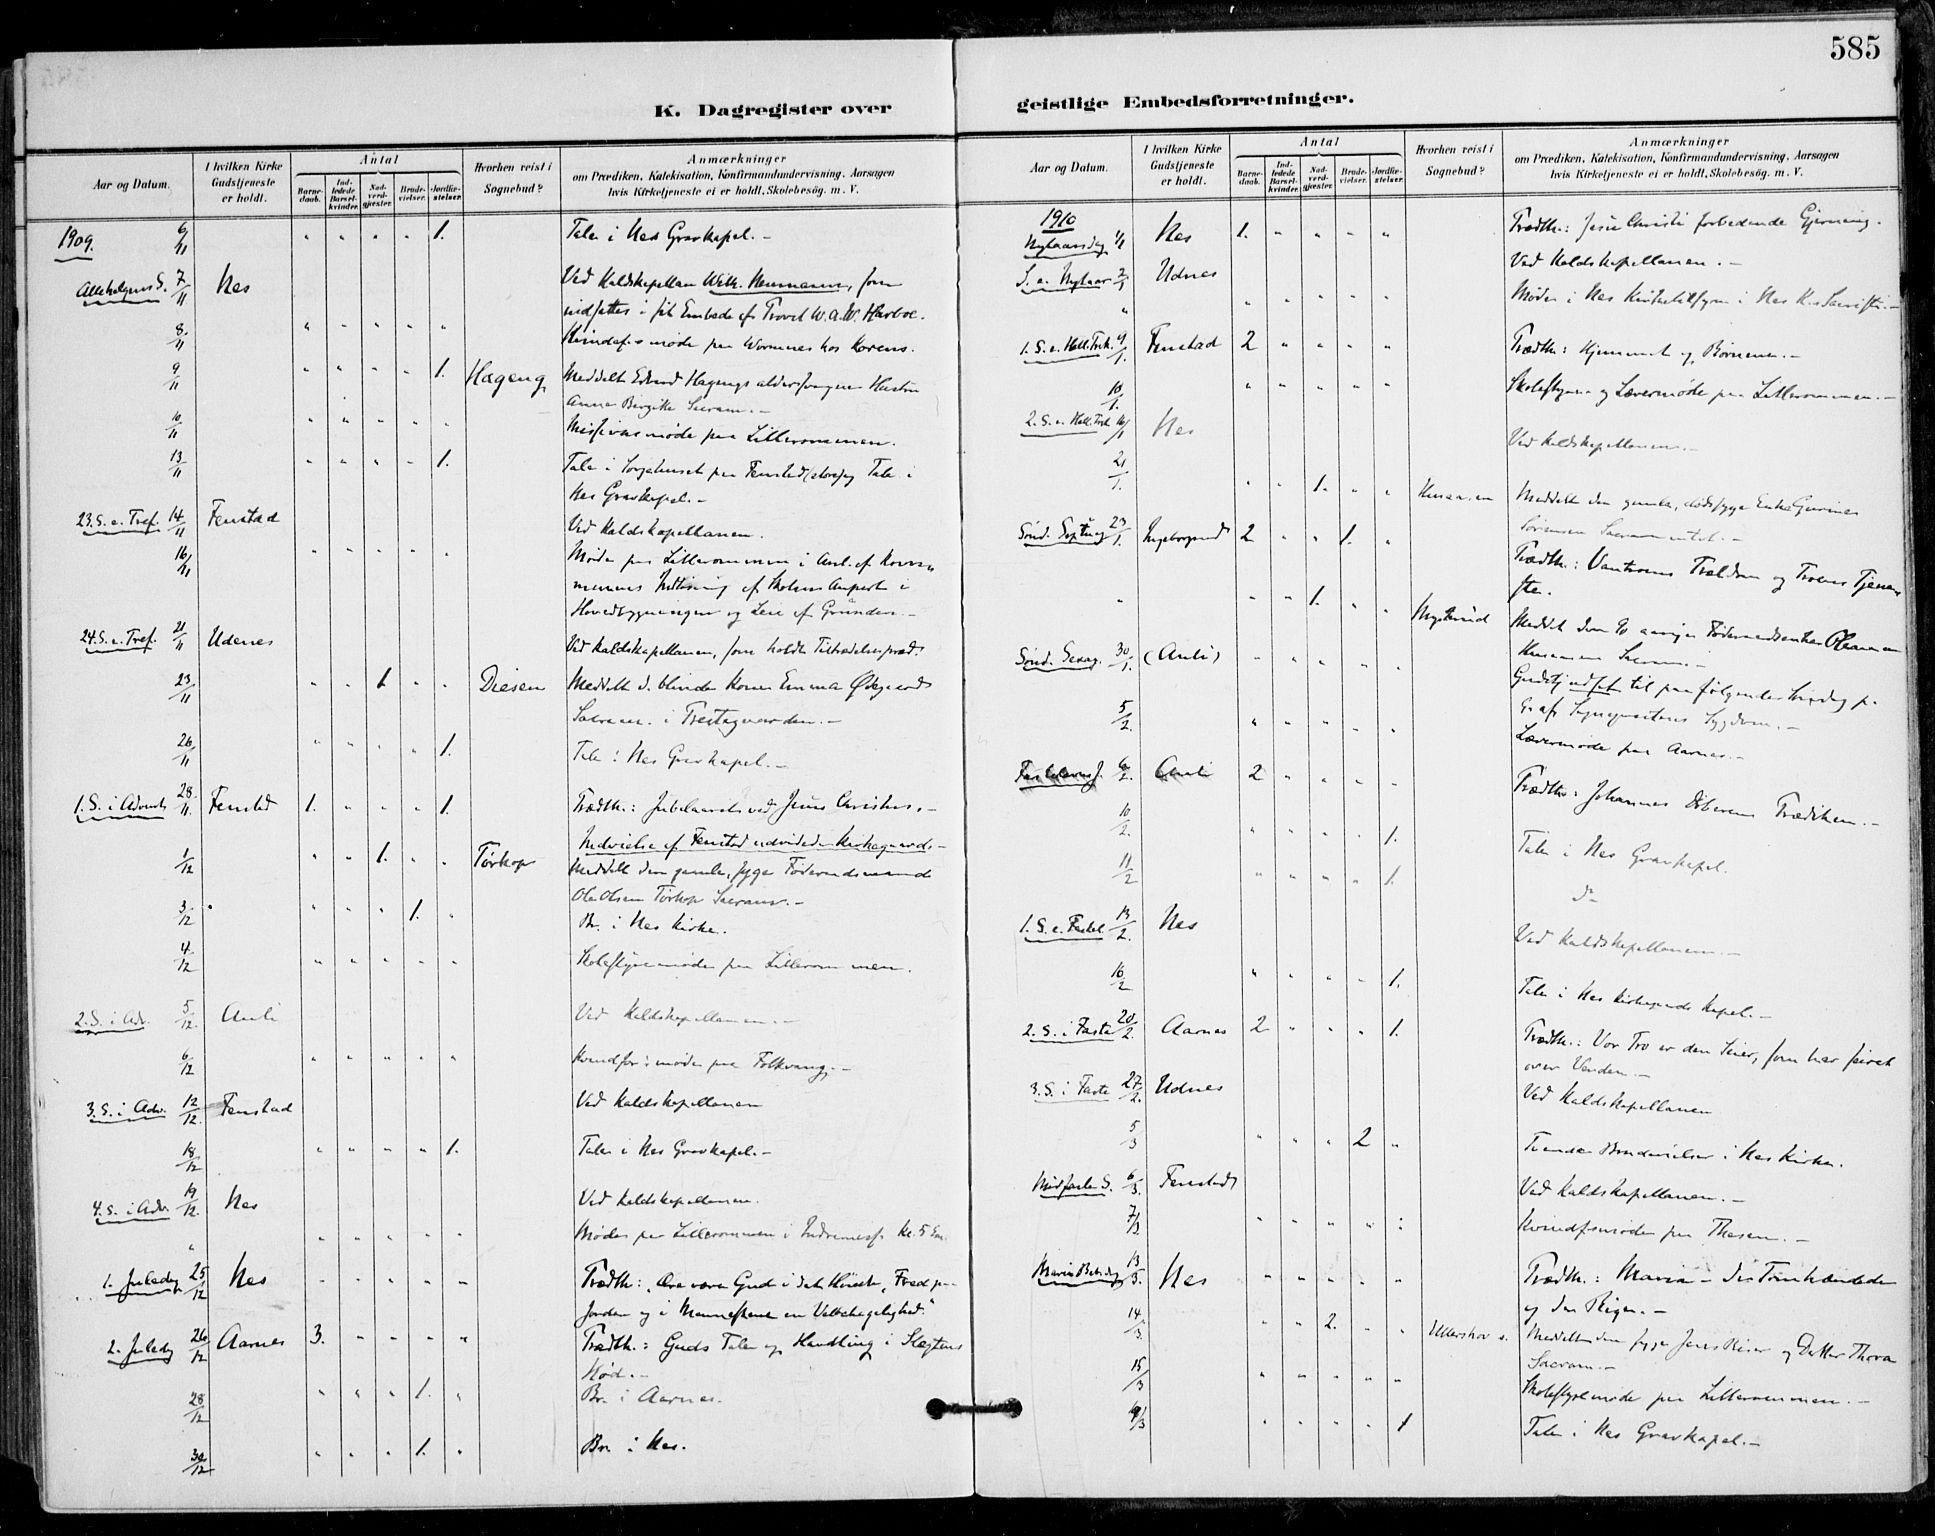 585
K. Dagregister over
geistlige Embedsforretninger.
Aar og Datum. I hvilken Kirke Gudstjeneste er holdt. Antal Barne-daab. Ind-ledede Barsel-kvinder. Nad-verd-gjæster. Brude-vielser. Jordfæ-stelser. Hvorhen reist i Sognebud? Anmærkninger om Prædiken, Katekisation, Konfirmandundervisning, Aarsagen hvis Kirketjeneste ei er holdt, Skolebesøg. m. V.
1909. 6/11 " " " " 1. Tale i Nes Gravkapel. -
Allehelgens S. 7/11 Nes Ved Kaldskapellan Wilh. Neumann, som
indsættes i sit Embede af Provst W. A. W. Harboe.
8/11 " " " " " møde paa Wormnes hos
9/11 " " " " 1. Hageng Meddelt Hagengs Hustru
Anna Birgitte Sacram. -
10/11 " " " " " Missionsmøde paa Lillerommen.
13/11 " " " " 1. Tale i Sørgehuset paa Fenstad Tale i
Nes Gravkapel. -
23. S. e. Tref. 14/11 Fenstad Ved Kaldskapellanen.
16/11 " " " " " Møde paa Lillerommen i Anl. af
af Skolens i
Hovedbygningen og Leie af Grunden. -
24. S. e. Tref. 21/11 Udenes Ved Kaldskapellanen, som holdt Tiltrædelsespræd.
23/11 " " 1. " " Diesen Meddelt d. blinde Kone Emma Ødegaard
Sacram. i -
26/11 " " " " 1. Tale i Nes Gravkapel. -
1. S. i Advent 28/11 Fenstad 1. " " " 1. Prædth.: Jubelaaret ved Jesus Christus. -
Indvielse af Fenstad udvidede Kirkegaard -
1/12 " " 1. " " Tørkop Meddelt den gamle, syge Føderaadsmand
Ole Olsen Tørkop Sacram. -
3/12 " " " 1. " Br. i Nes Kirke.
4/12 " " " " " Skolestyremøde paa Lillerommen.
2. S. i Adv. 5/12. Auli Ved Kaldskapellanen. -
6/12 " " " " " Kvindfor: møde paa Folkvang. -
3. S. i Adv. 12/12. Fenstad Ved Kaldskapellanen
18/12 " " " " 1. Tale i Nes Gravkapel. -
4. S. i Adv. 19/12. Nes Ved Kaldskapellanen.
" " " " " " Møde paa Lillerommen i Indremiss. Kl. 5 Em.
1. Juledag 25/12 Nes " " " " " Prædth.: Ære være Gud i det Høieste, Fred paa
Jorden og i Menneskene en Velbehagelighed."
2. Juledag 26/12 Aarnes 3. " " " " Prædth.: Guds Tale og Handling i Slegtens
Nød. -
28/12 " " " 1. " Br. i Aarnes.
30/12 " " " 1. " Br. i Nes.
Aar og Datum. I hvilken Kirke Gudstjeneste er holdt. Antal Barne-daab. Ind-ledede Barsel-kvinder. Nad-verd-gjæster. Brude-vielser. Jordfæ-stelser. Hvorhen reist i Sognebud? Anmærkninger om Prædiken, Katekisation, Konfirmandundervisning, Aarsagen hvis Kirketjeneste ei er holdt, Skolebesøg. m. V.
1910
Nytaarsdag 1/1 Nes 1. " " " " Prædth.: Jesu Christi forbedende Gjerning.
S. e. Nytaar 2/1 Udnes Ved Kaldskapellanen. -
" " " " " " Møde i Nes Kirketilsyn i Nes K.s Sacristi. -
1. S. e. Hell. Trek. 9/1. Fenstad 2 " " " " Prædth.: Hjemmet og Børnene. -
10/1. " " " " " Skolestyre- og Lærermøde paa Lillerommen. -
2. S. e. Hell. Trek. 16/1 Nes Ved Kaldskapellanen. -
21/1. " " 1. " " Meddelt den gamle, dødssyge Enke
Sørensen Sacramentet. -
Sønd. Septuag 23/1. Ingeborgrud 2 " " 1. " Prædth.: Vantroens Trældom og Troens Tjene-
ste.
" " " 1. " " Myrerud Meddelt den 90 aarige
Sacram. -
Sønd. Sexag. 30/1. (Auli) " " " " " Gudstj. udsat til paa følgende Søndag p.
Gr. af Sognepræstens Sygdom. -
5/2. " " " " " Lærermøde paa Aarnes. -
Fastelavns S. 6/2. Auli 2 " " " " Prædth: Johannes Døberens Prædiken. -
10/2. " " " " 1. Tale i Nes Gravkapel.
11/2 " " " " 1. d-
1. S. e. Fastel. 13/2. Nes Ved Kaldskapellanen. -
16/2 " " " " 1. Tale i Nes Kirkegaards Kapel. -
2. S. i Faste 20/2. Aarnes 2 " " " 1. Prædth.: Vor Tro er den Seier, som har seiret
over Verden. -
3. S. i Faste 27/2. Udnes Ved Kaldskapellanen
5/3 " " " 2 " Tvende Brudevielser i Nes Kirke.
Midfaste S. 6/3. Fenstad Ved Kaldskapellanen. -
7/3 " " " " " Kvindfsmøde paa Thesen. -
Mariæ Beb. dag 13/3. Nes " " " " " Prædth.: Maria - den Tomhændede
og den Rige. -
14/3. " " 2. " " Ullershov Meddelt den syge Jens og Datter Thora
Sacram. -
15/3 " " " " " Skolestyremøde paa Lillerommen. -
19/3 " " " " 1 Tale i Nes Gravkapel. -